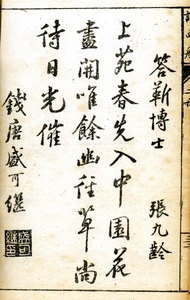 答靳博士
張九齡
上苑春先入中園花
盡開唯餘幽徑草尚
待日光催
錢唐盛可繼